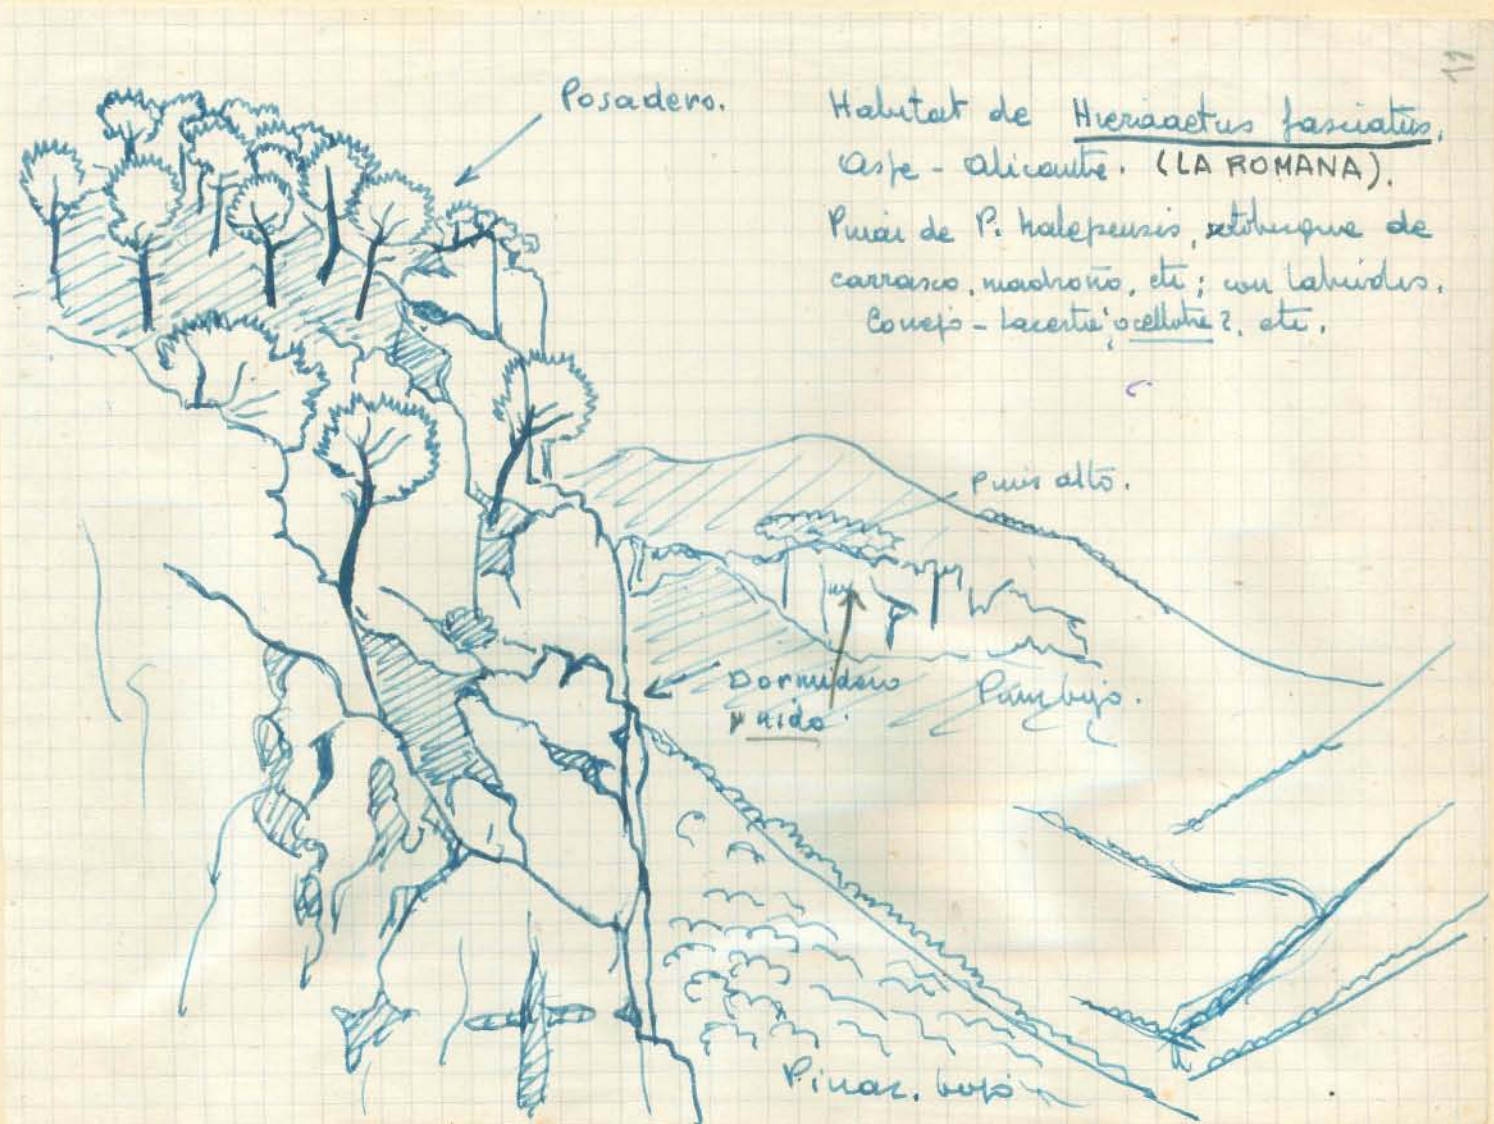 11
Posadero.
Habitat de Hieriaaetus fasciatus.
Aspe - Alicante. (LA ROMANA).
Pinar de P. halepensis, sotobosque de
carrasco, madroño, etc; con labiadas.
Conejo - Lacerta ocellata?, etc.
Pinar alto.
Dormidero
y nido.
Pinar bajo.
Pinar. bajo